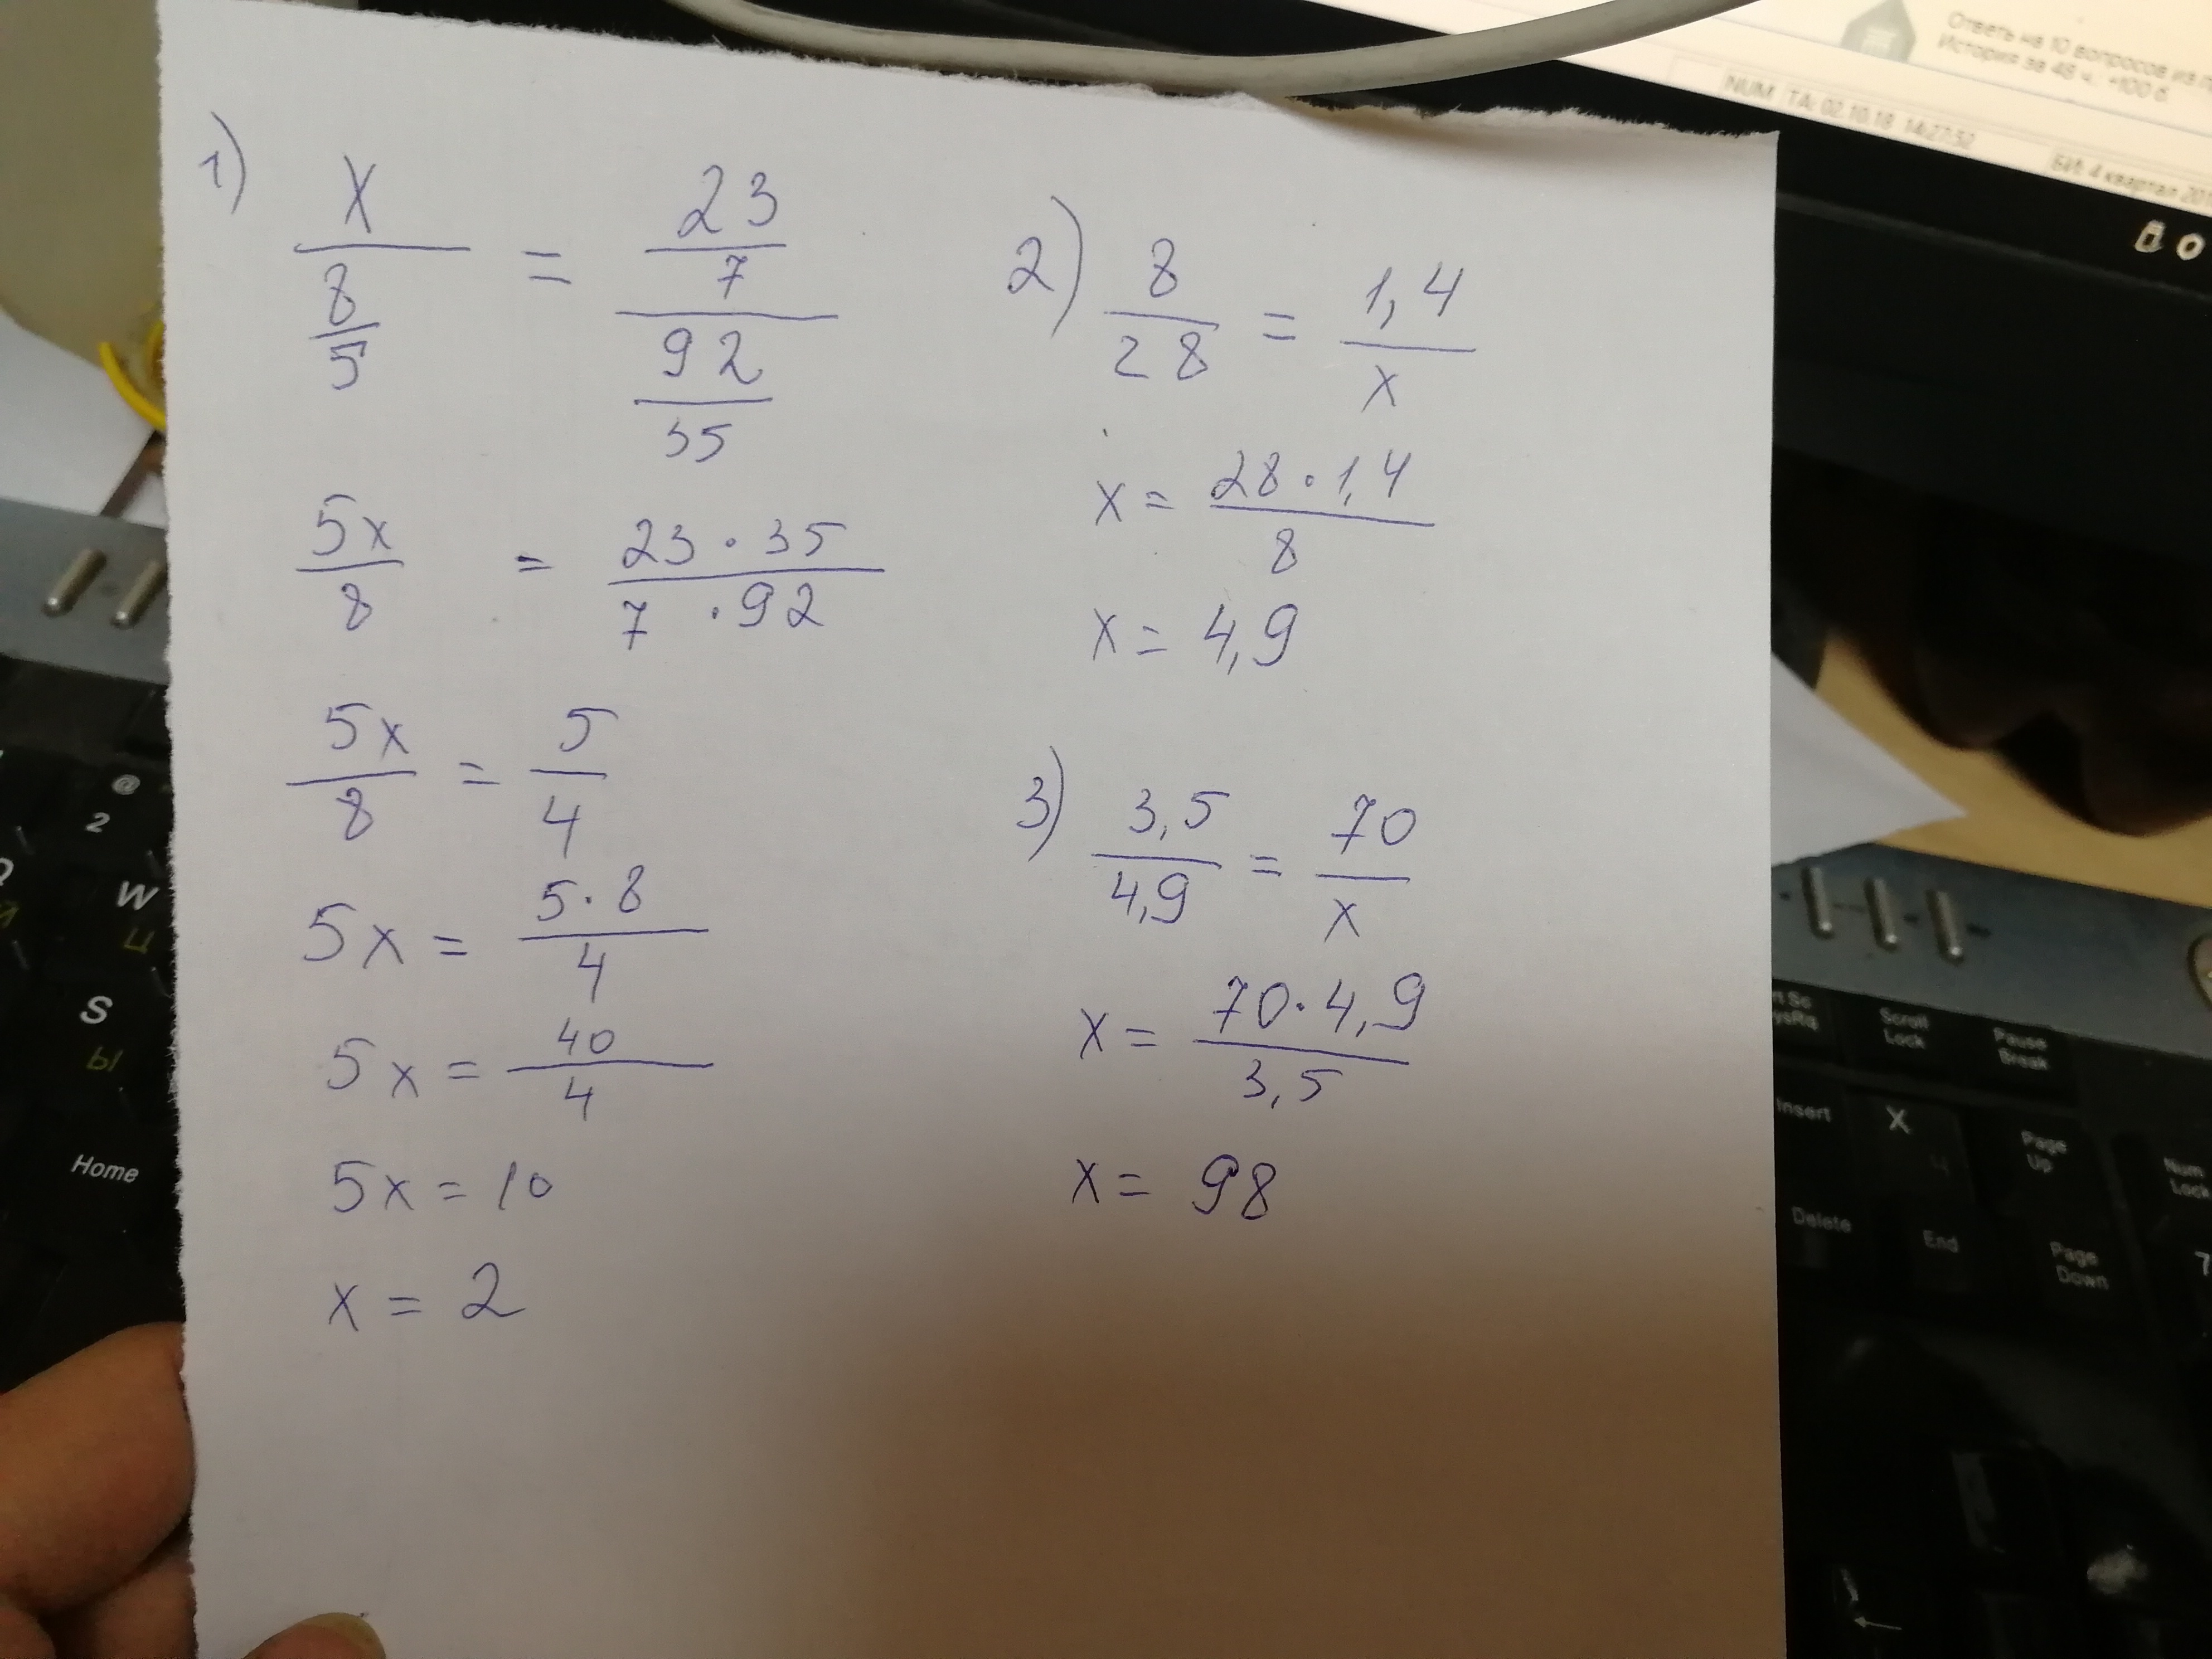 Ответь на 10 вопросов из
История за 48 ч. +100 б.
NUM TA: 02.10.18 14:27:52
4 квартал 201
1)
x / (8/5) = (23/7) / (92/35)
5x/8 = 23 · 35 / 7 · 92
5x/8 = 5/4
5x = 5 · 8 / 4
5x = 40/4
5x = 10
x = 2
2) 8/28 = 1,4/x
x = 28 · 1,4 / 8
x = 4,9
3) 3,5/4,9 = 70/x
x = 70 · 4,9 / 3,5
x = 98
@
2
W
Ц
S
Ы
Home
Scroll
Lock
Pause
Break
Insert
X
Page
Up
Num
Lock
Delete
End
Page
Down
7